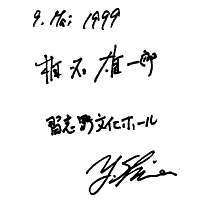 9. Mai 1999
雄一郎
習志野文化ホール